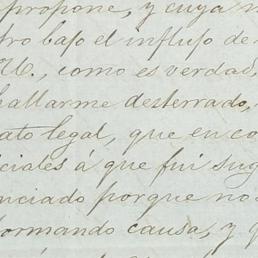 propone, y cuya
tro bajo el influjo de
M., como es verdad,
hallarme desterrado,
ato legal, que en co
ciales á que fui suge
nciado porque no s
formando causa, y q